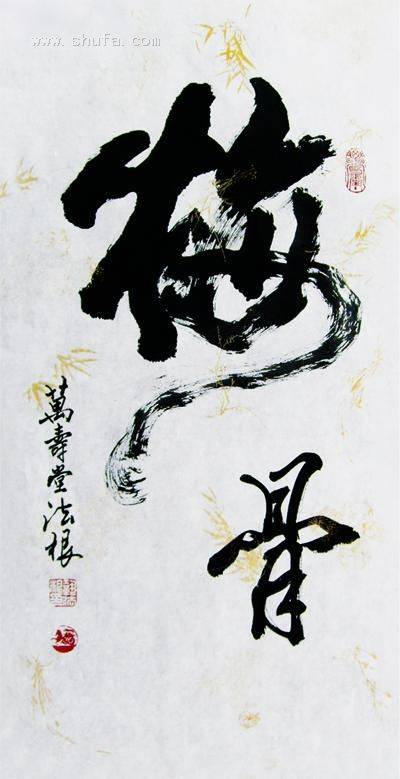 www.shufa.com
梅
骨
萬壽堂法根